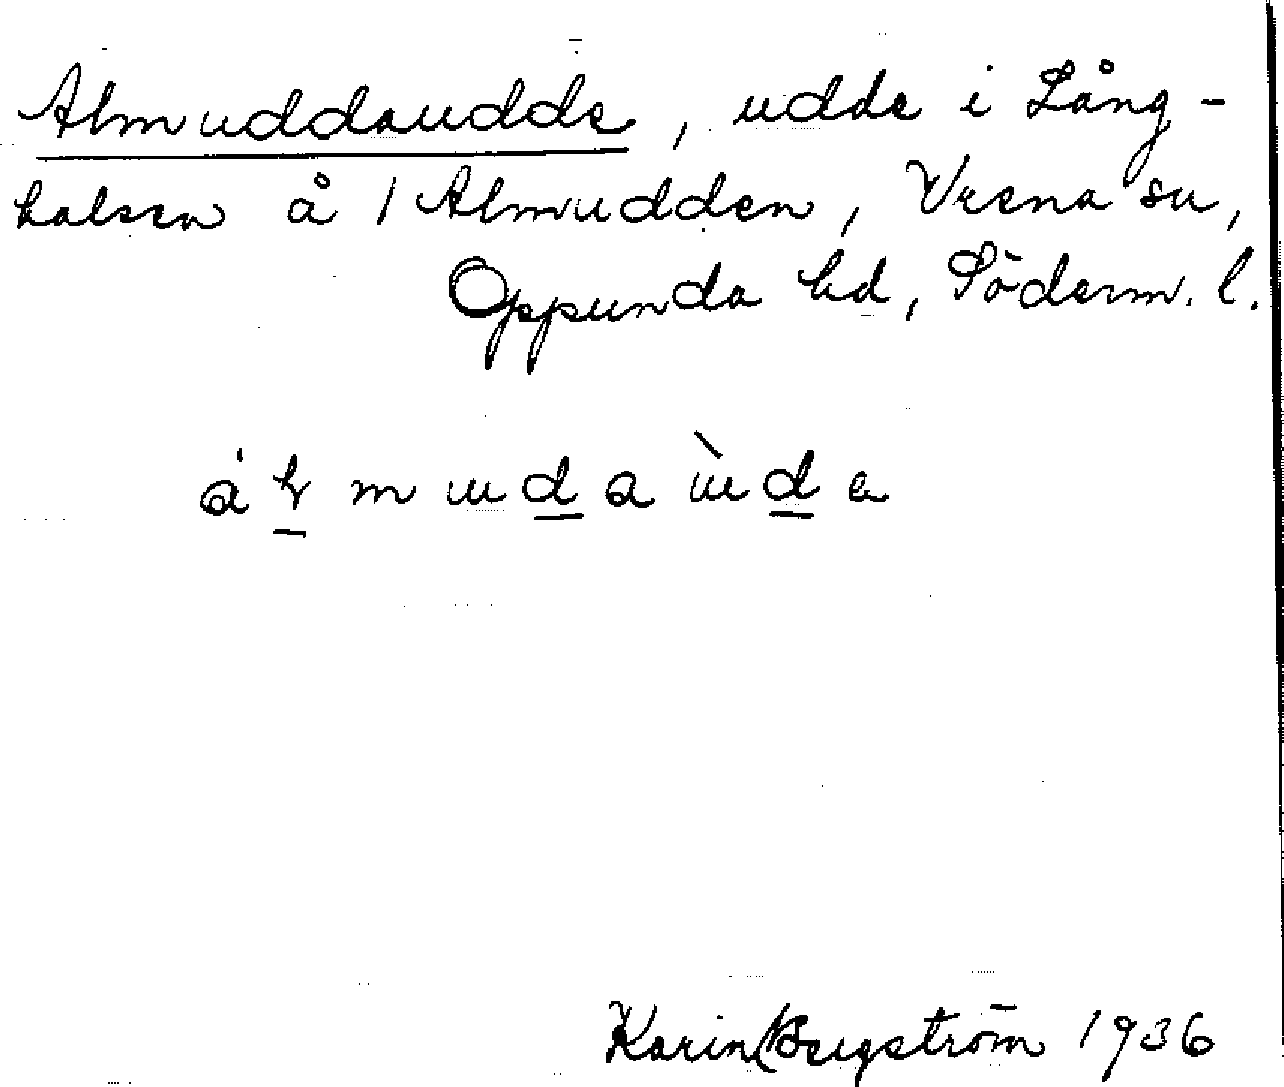 Almuddaudde, udde i Lång-
halsen å 1 Almudden, Vrena sn,
Oppunda hd, Söderm. l.
Karin Bergström 1936